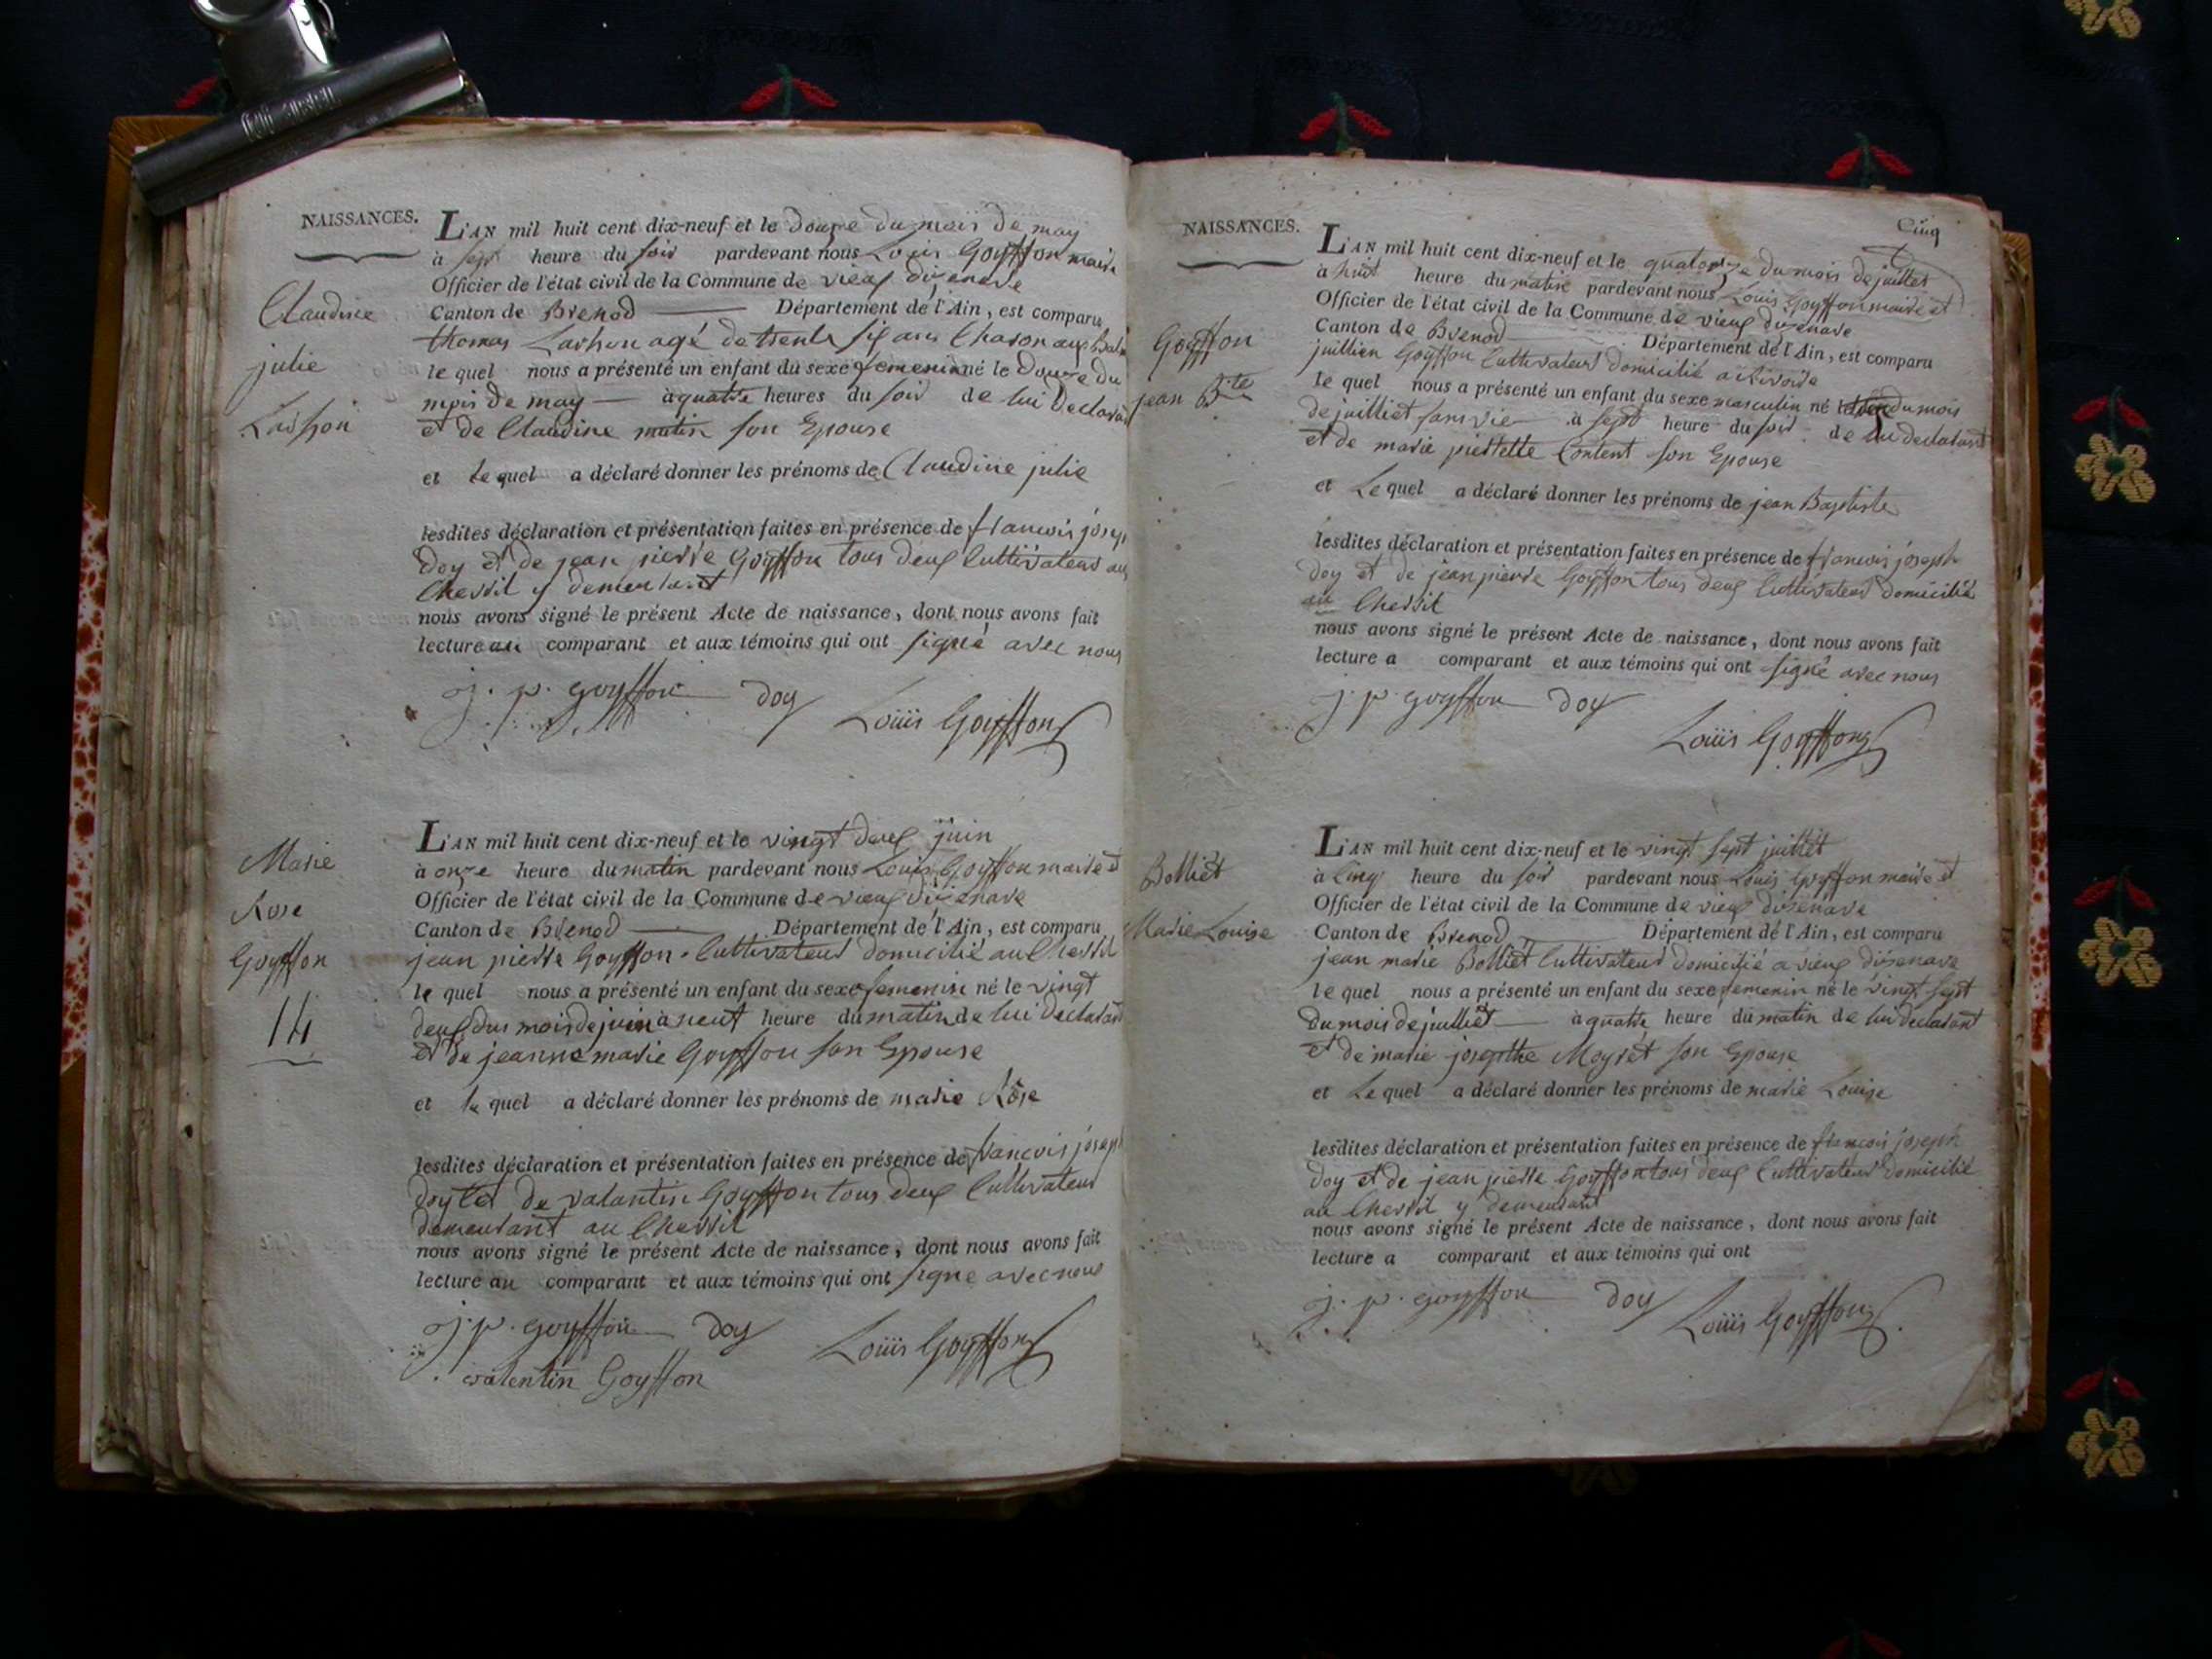 NAISSANCES.
L'AN mil huit cent dix-neuf et le douze du mois de may
à sept heure du soir pardevant nous Louis Goyffon maire
Officier de l'état civil de la Commune de vieux dizenave
Canton de Brenod Département de l'Ain, est comparu
Claudine
julie
Lashon
thomas Lashon agé de trente six ans Charon aux
le quel nous a présenté un enfant du sexe femenin né le Douze du
mois de may à quatre heures du soir de lui declarant
et de Claudine matin son Epouse
et le quel a déclaré donner les prénoms de Claudine julie
lesdites déclaration et présentation faites en présence de francois josep
Doy et de jean pierre Goyffon tous deux Cultivateurs au
Chevril y demeurant
nous avons signé le présent Acte de naissance, dont nous avons fait
lecture au comparant et aux témoins qui ont signé avec nous
j. p. goyffon doy Louis Goyffon
L'AN mil huit cent dix-neuf et le vingt deux juin
à onze heure du matin pardevant nous Louis Goyffon maire et
Officier de l'état civil de la Commune de vieux dizenave
Canton de Brenod Département de l'Ain, est comparu
Marie
Rose
Goyffon
14
jean pierre Goyffon Cultivateur domicilié au Chevril
le quel nous a présenté un enfant du sexe femenin né le vingt
deux du mois de juin à neuf heure du matin de lui declarant
et de jeanne marie Goyffon son Epouse
et le quel a déclaré donner les prénoms de marie Rose
lesdites déclaration et présentation faites en présence de francois joseph
doy et de valantin Goyffon tous deux Cultivateur
demeurant au Chevril
nous avons signé le présent Acte de naissance, dont nous avons fait
lecture au comparant et aux témoins qui ont signé avec nous
j. p. goyffon doy Louis Goyffon
valentin Goyffon
Cinq
NAISSANCES.
L'AN mil huit cent dix-neuf et le quatorze du mois de juillet
à huit heure du matin pardevant nous Louis Goyffon maire et
Officier de l'état civil de la Commune de vieux dizenave
Canton de Brenod Département de l'Ain, est comparu
Goyffon
jean Bte
juillien Goyffon Cultivateur domicilié a
le quel nous a présenté un enfant du sexe masculin né du mois
de juilliet sans vie à sept heure du soir de lui declarant
et de marie pierrette Content son Epouse
et Le quel a déclaré donner les prénoms de jean Baptiste
lesdites déclaration et présentation faites en présence de francois joseph
doy et de jean pierre Goyffon tous deux Cultivateur domicilié
au Chevril
nous avons signé le présent Acte de naissance, dont nous avons fait
lecture a comparant et aux témoins qui ont signé avec nous
j. p. goyffon doy
Louis Goyffon
L'AN mil huit cent dix-neuf et le vingt sept juillet
à Cinq heure du soir pardevant nous Louis Goyffon maire et
Officier de l'état civil de la Commune de vieux dizenave
Canton de Brenod Département de l'Ain, est comparu
Bolliet
Marie Louise
jean marie Bolliet Cultivateur domicilié a vieux dizenave
le quel nous a présenté un enfant du sexe femenin né le vingt sept
du mois de juilliet à quatre heure du matin de lui declarant
et de marie josepthe Moyret son Epouse
et Le quel a déclaré donner les prénoms de marie Louise
lesdites déclaration et présentation faites en présence de francois joseph
doy et de jean pierre Goyffon tous deux Cultivateur domicilié
au Chevril y demeurant
nous avons signé le présent Acte de naissance, dont nous avons fait
lecture a comparant et aux témoins qui ont
j. p. goyffon doy Louis Goyffon